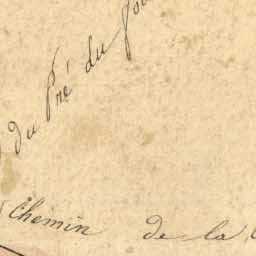 du Pré du
Chemin de la